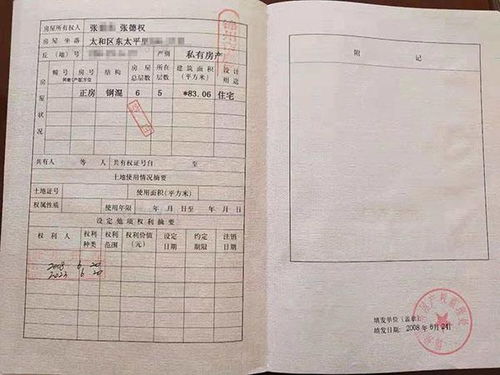 房屋所有权人 张 张德权
房屋坐落 太和区东太平里
丘（地）号 产别 私有房产
幢号 房号 结构 房屋总层数 所在层数 建筑面积（平方米） 设计用途
房屋状况
正房 钢混 6 5 *83.06 住宅
共有人 等 人 共有权证号自 至
土地使用情况摘要
土地证号 使用面积（平方米）
权属性质 使用年限 年 月 日至 年 月 日
设定他项权利摘要
权利人 权利种类 权利范围 权利价值（元） 设定日期 约定期限 注销日期
附记
填发单位（盖章）
填发日期：2008年6月24日